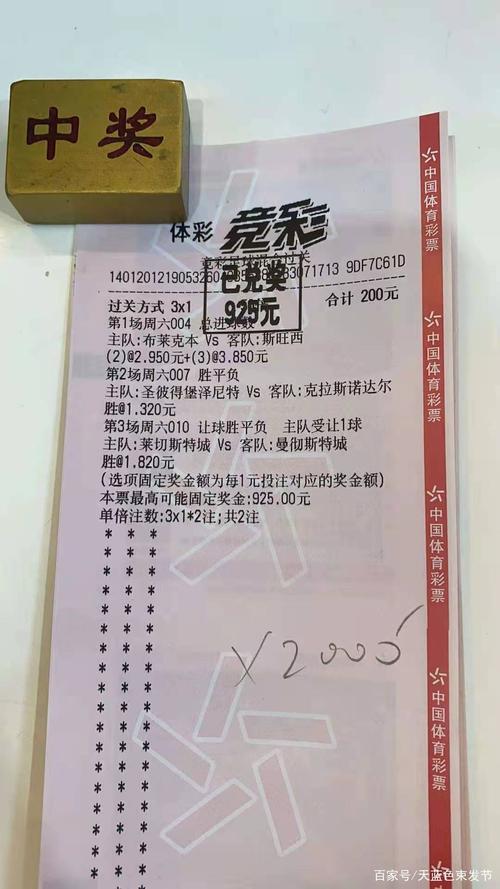 中奖
体彩 竞彩
竞彩足球混合过关
已兑奖
925元
过关方式 3x1
合计 200元
第1场周六004 总进球数
主队:布莱克本 Vs 客队:斯旺西
(2)@2.950元+(3)@3.850元
第2场周六007 胜平负
主队:圣彼得堡泽尼特 Vs 客队:克拉斯诺达尔
胜@1.320元
第3场周六010 让球胜平负 主队受让1球
主队:莱切斯特城 Vs 客队:曼彻斯特城
胜@1.820元
(选项固定奖金额为每1元投注对应的奖金额)
本票最高可能固定奖金:925.00元
单倍注数:3x1*2注;共2注
X2000
中国体育彩票
中国体育彩票
中国体育彩票
中国体育彩票
百家号/天蓝色束发节